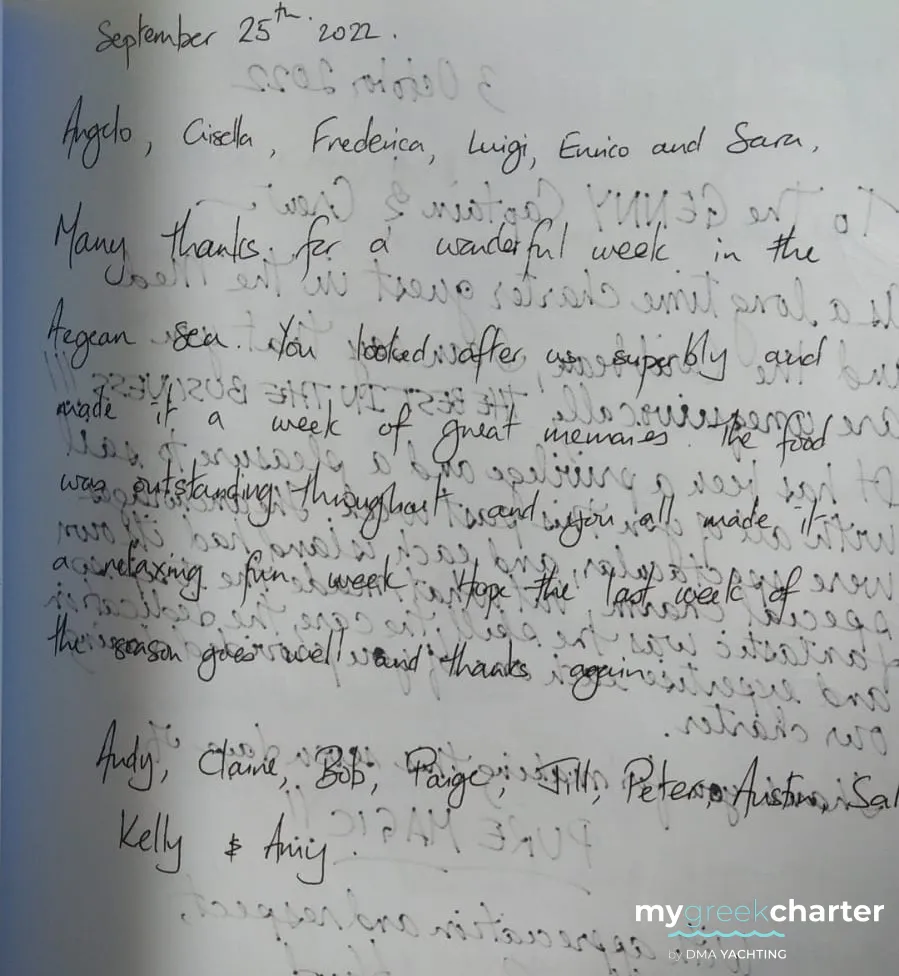 September 25th. 2022.
Angelo, Gisella, Frederica, Luigi, Enrico and Sara,
Many thanks for a wonderful week in the
Aegean sea. You looked after us superbly and
made it a week of great memories. The food
was outstanding throughout and you all made it
a relaxing fun week. Hope the last week of
the season goes well and thanks again
Andy, Claire, Bob, Paige, Jill, Peter, Austin, Sal
Kelly & Amy.
mygreekcharter
by DMA YACHTING